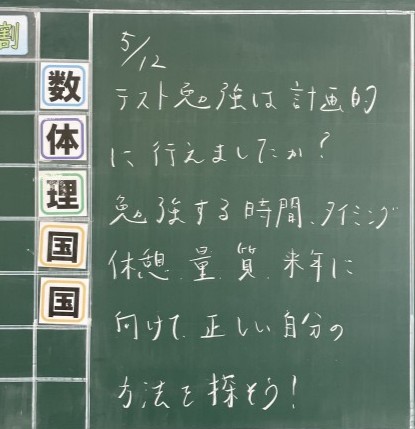 割
数
体
理
国
国
5/12
テスト勉強は計画的
に行えましたか？
勉強する時間、タイミング
休憩、量、質、来年に
向けて、正しい自分の
方法を探そう！